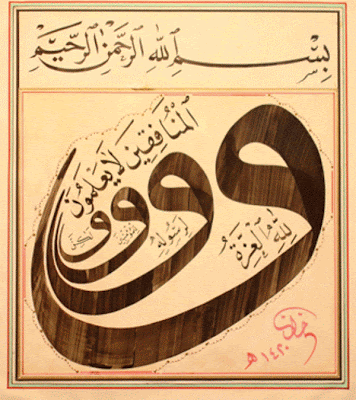 بِسْمِ اللهِ الرَّحْمٰنِ الرَّحِيْمِ
وَلِلّٰهِ الْعِزَّةُ وَلِرَسُولِهِ وَلِلْمُؤْمِنِينَ وَلٰكِنَّ
الْمُنَافِقِينَ لَا يَعْلَمُونَ
١٤٢٠ هـ